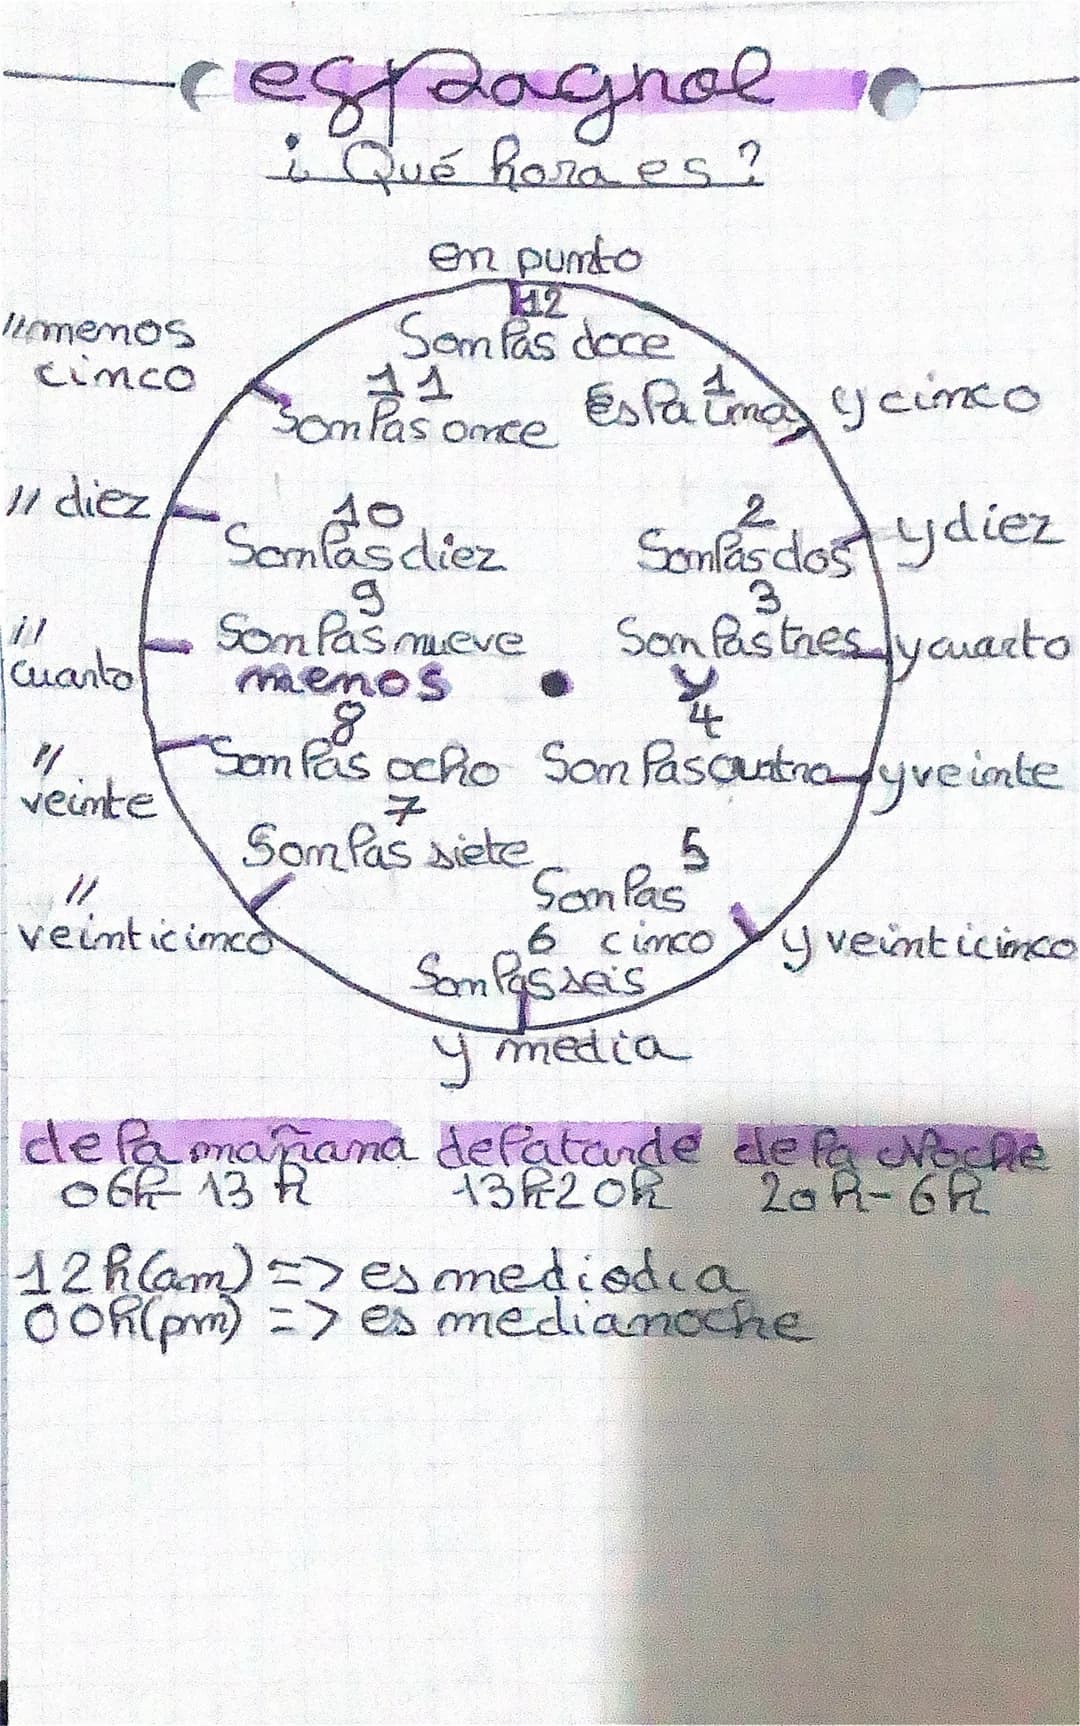 espagnol
¿Qué hora es?
en punto
12
Son las doce
// menos
cinco
11
Son las once
1
Es la una
y cinco
// diez
10
Son las diez
2
Son las dos
y diez
9
Son las nueve
3
Son las tres
//
cuarto
y cuarto
menos
y
8
Son las ocho
4
Son las cuatro
//
veinte
y veinte
7
Son las siete
5
Son las
cinco
//
veinticinco
6
Son las seis
y veinticinco
y media
de la mañana de la tarde de la Noche
06h-13h 13h-20h 20h-6h
12h(am) => es mediodia
00h(pm) => es medianoche